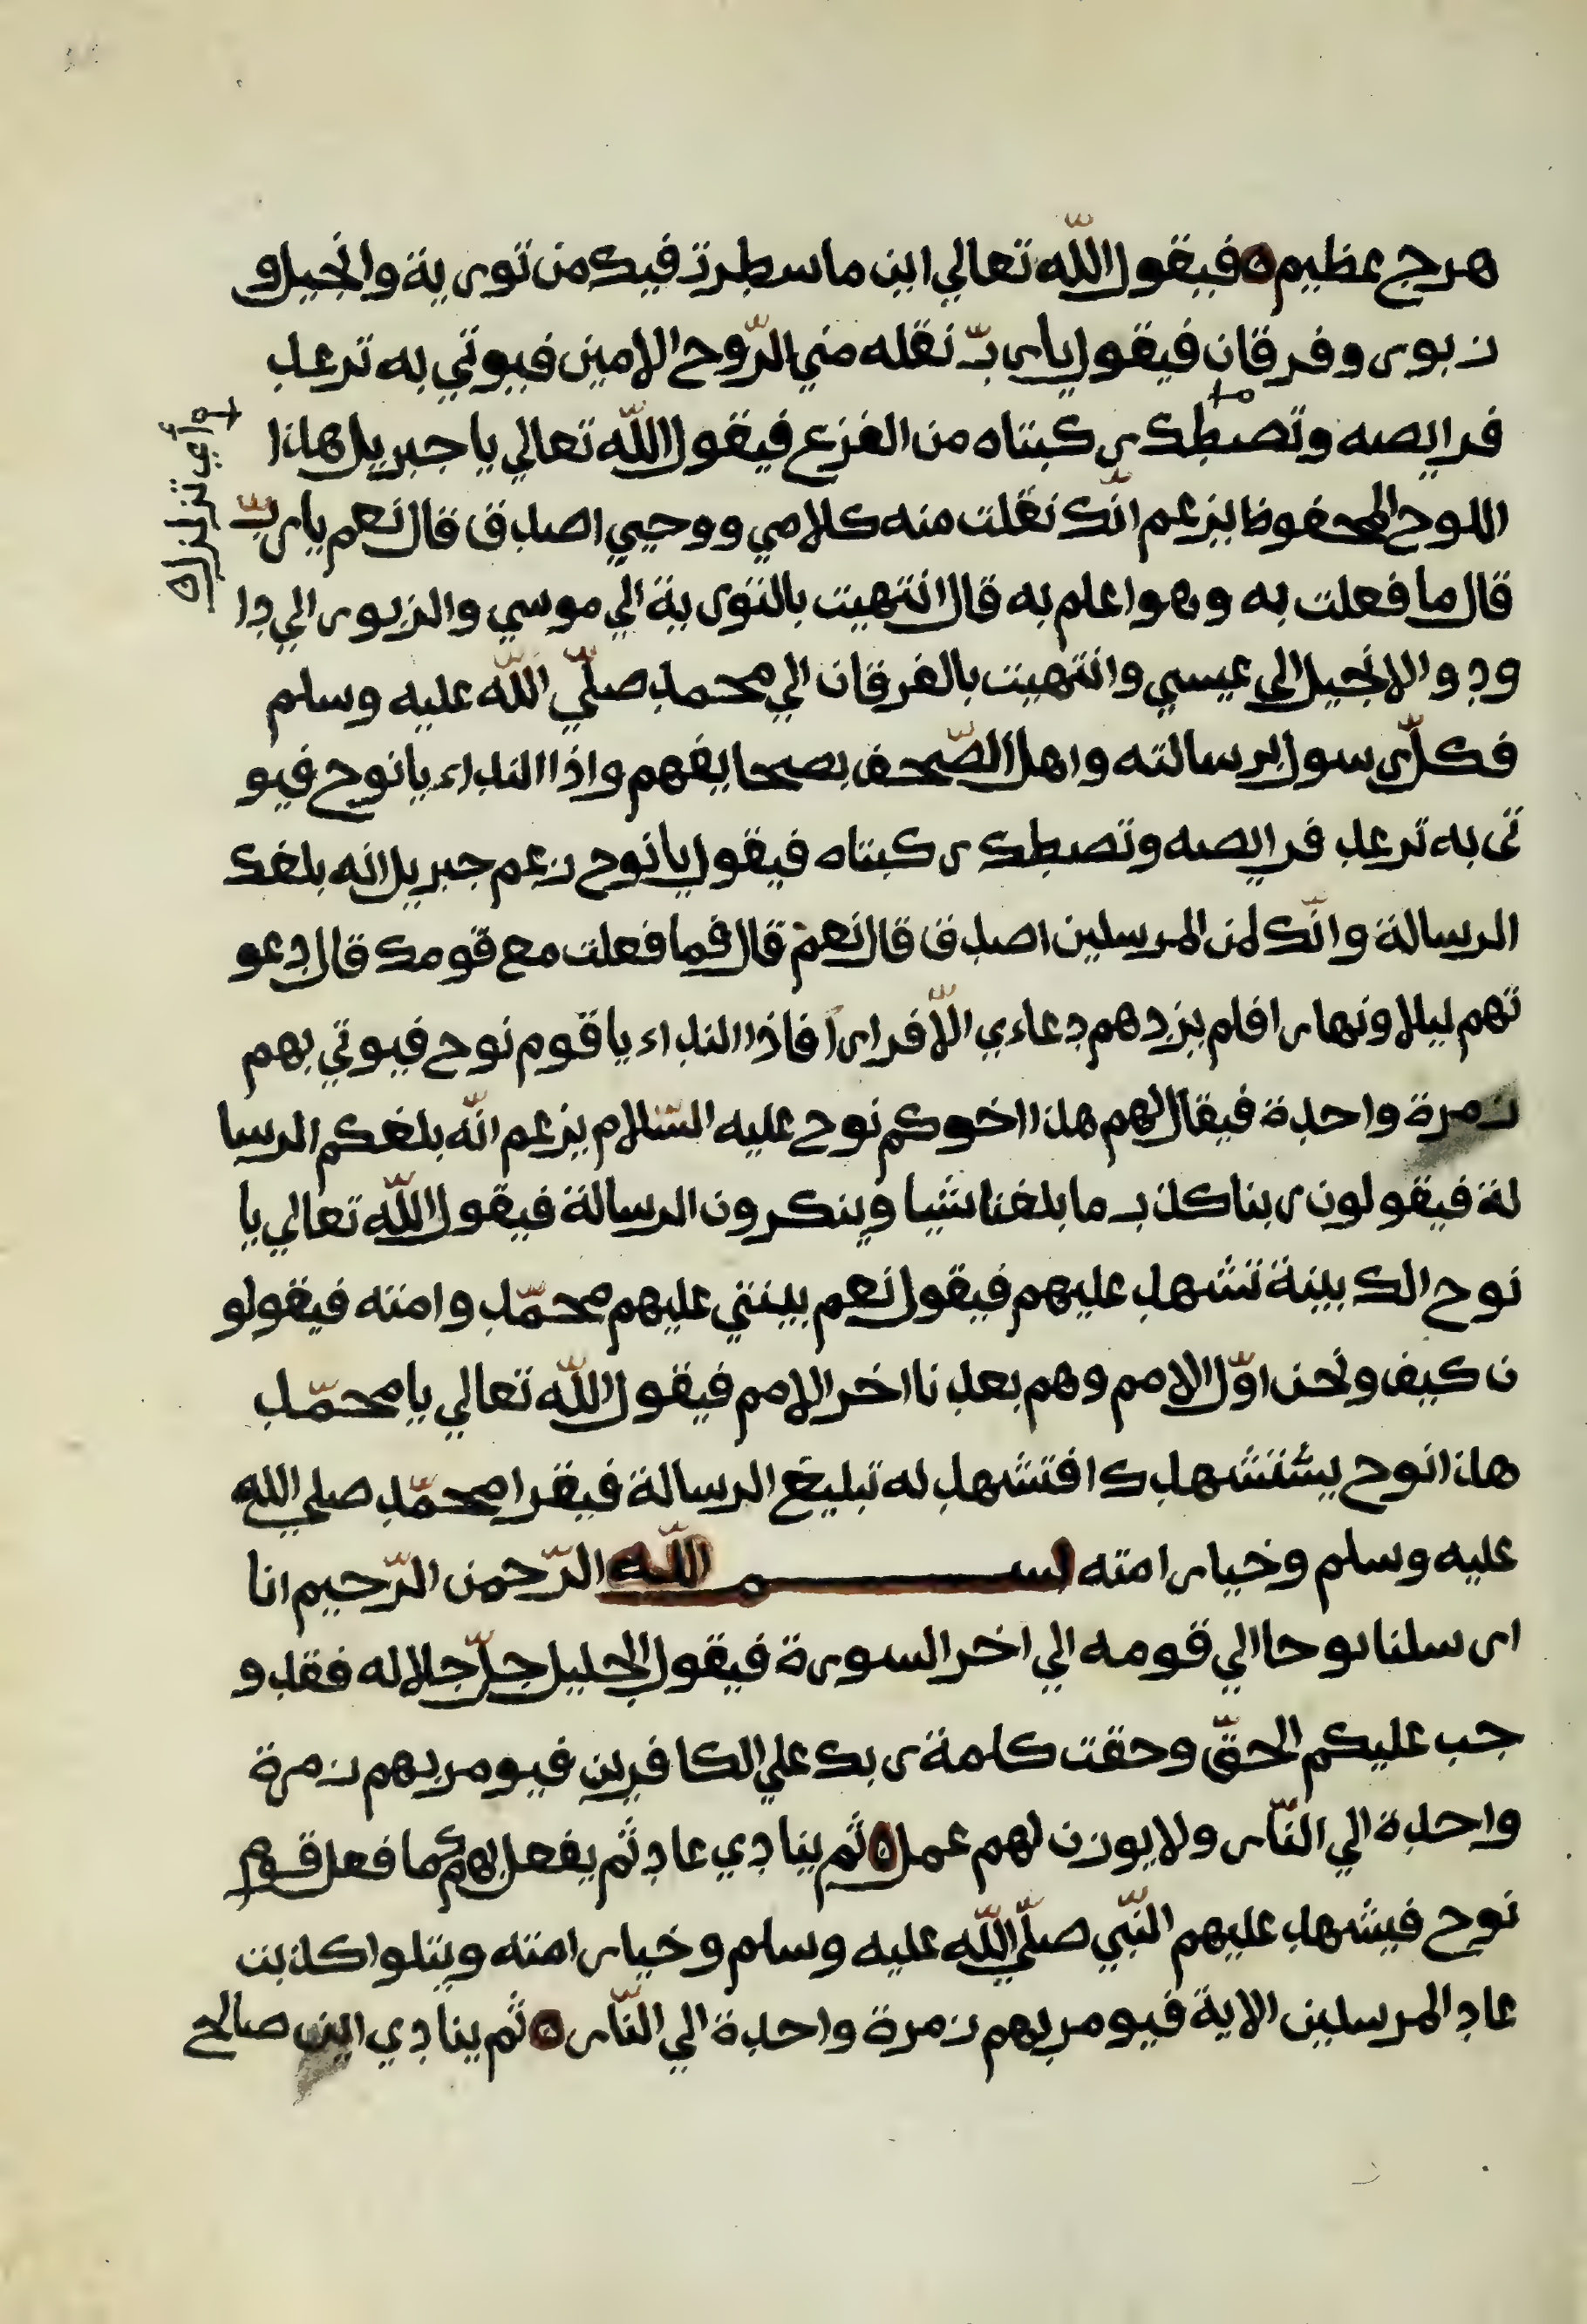 هرج عظيم ه فيقول اللّه تعالي اين ما سطرت فيك من تورية وانجيل و
زبور وفرقان فيقول يا ربّ نقله مني الرّوح الامين فيوتي به ترعد
فرايصه وتصطك ركبتاه من الفزع فيقول اللّه تعالي يا جبريل هاذا
اللوح المحفوظ يزعم انّك نقلت منه كلامي ووحيي اصدق قال نعم يا ربّ
قال ما فعلت به وهو اعلم به قال انتهيت بالتورية الي موسي والزبور الي دا
ود والانجيل الي عيسي وانتهيت بالفرقان الي محمد صلّي اللّه عليه وسلم
فكلّ رسول برسالته واهل الصّحف بصحايفهم واذا النداء يا نوح فيو
تي به ترعد فرايصه وتصطك ركبتاه فيقول يا نوح زعم جبريل انه بلغك
الرسالة وانّك لمن المرسلين اصدق قال نعم قال فما فعلت مع قومك قال دعو
تهم ليلا ونهارا فلم يزدهم دعاءي الّا فرارا فاذا النداء يا قوم نوح فيوتي بهم
زمرة واحدة فيقال لهم هذا اخوكم نوح عليه السّلام يزعم انّه بلغكم الرسا
لة فيقولون ربنا كذب ما بلغنا شيا وينكرون الرسالة فيقول اللّه تعالي يا
نوح الك بينة تشهد عليهم فيقول نعم بينتي عليهم محمّد وامته فيقولو
ن كيف ونحن اوّل الامم وهم بعدنا اخر الامم فيقول اللّه تعالي يا محمّد
هاذا نوح يستشهدك افتشهد له تبليغ الرسالة فيقرا محمّد صلي الله
عليه وسلم وخيار امته بسم اللّه الرّحمن الرّحيم انا
ارسلنا نوحا الي قومه الي اخر السورة فيقول الجليل جلّ جلاله فقد و
جب عليكم الحقّ وحقت كلمة ربك علي الكافرين فيومر بهم زمرة
واحدة الي النّار ولا يوزن لهم عمل ه ثم ينادي عاد ثم يفعل بهم كما فعل قوم
نوح فيشهد عليهم النّبي صلّي اللّه عليه وسلم وخيار امته ويتلوا كذبت
عاد المرسلين الاية فيومر بهم زمرة واحدة الي النّار ه ثم ينادي اين صالح
اي تزلزل